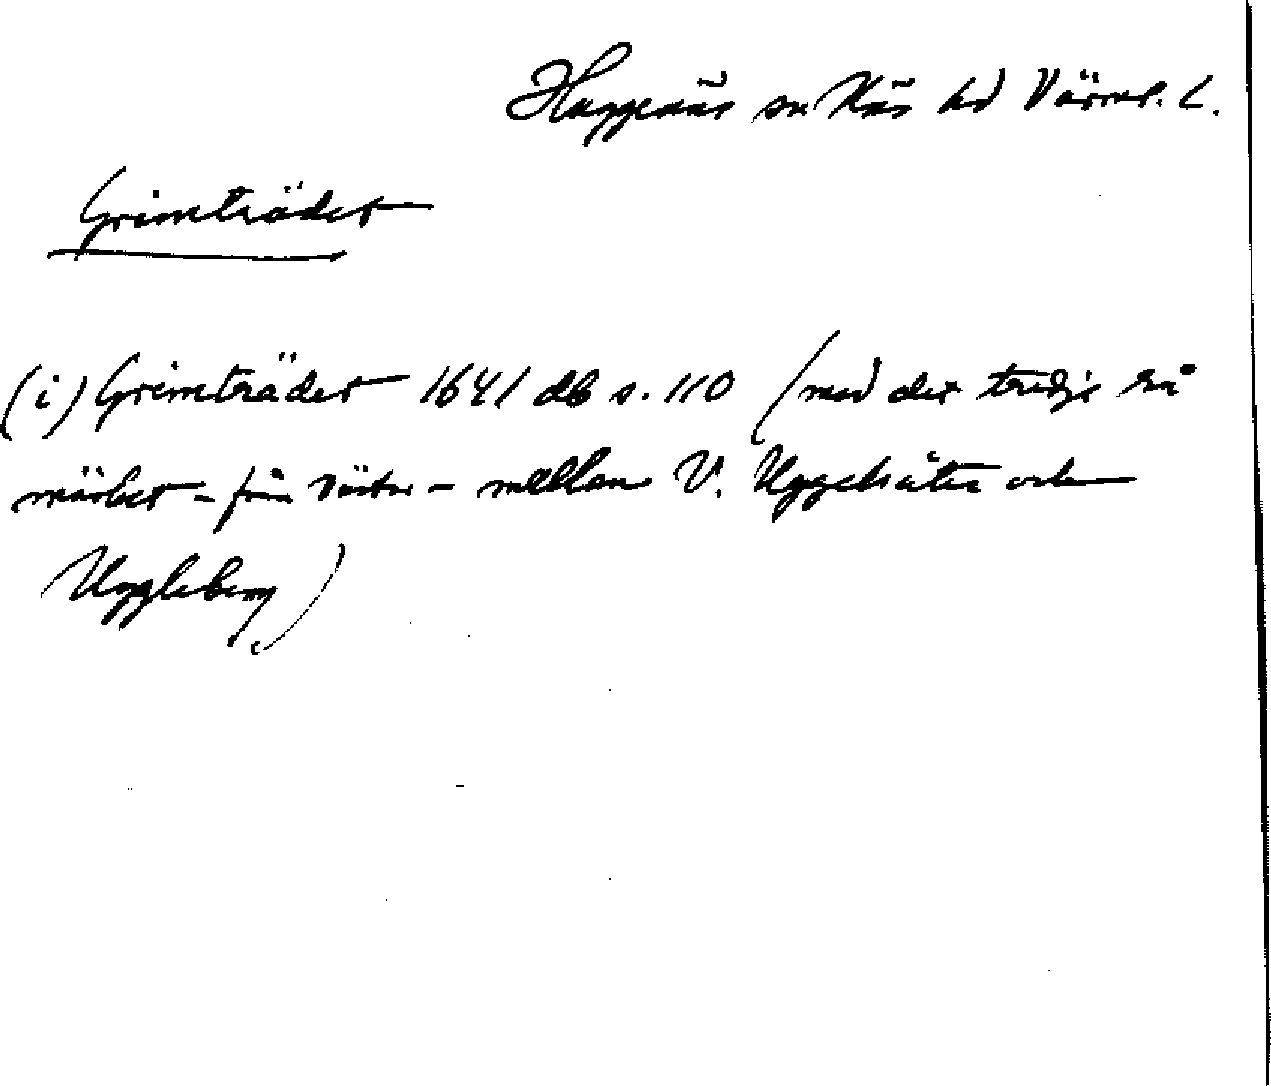 Huggenäs sn Näs hd Värml. L.
Grimträdet
(i) Grimträdet 1641 db s. 110 (med det tredje rå
märket - från väster - mellan V. Uggelsäter och
Uggleberg)